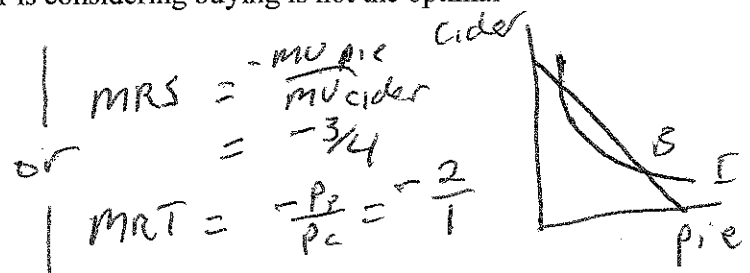 is considering buying is not the optimal
cider
MRS = -MU pie / MU cider
or = -3/4
MRT = -Pp/Pc = -2/1
B
I
pie